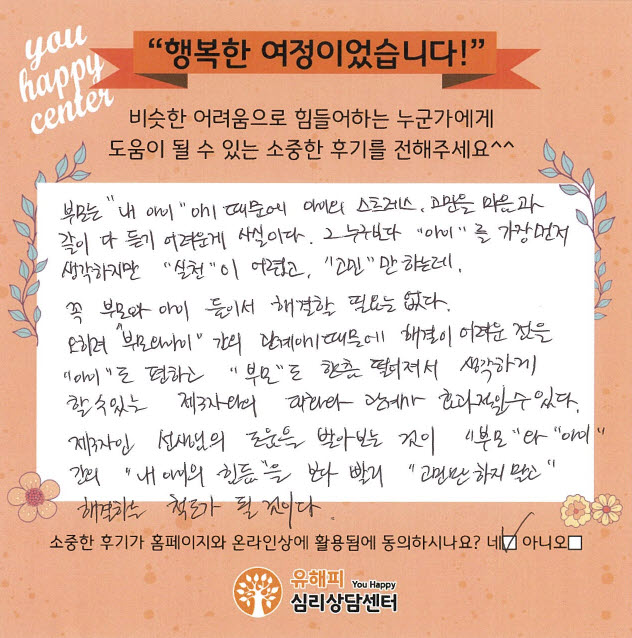 you
happy
center
“행복한 여정이었습니다!”
비슷한 어려움으로 힘들어하는 누군가에게
도움이 될 수 있는 소중한 후기를 전해주세요^^
부모는 "내 아이" 이기 때문에 아이의 스트레스, 고민을 마음과
같이 다 듣기 어려운게 사실이다. 그 누구보다 "아이"를 가장 먼저
생각하지만 "실천"이 어렵고, "고민"만 하는데,
꼭 부모와 아이 둘이서 해결할 필요는 없다.
오히려 "부모와아이" 간의 관계이기때문에 해결이 어려운 것을
"아이"도 편하고 "부모"도 한층 떨어져서 생각하게
할 수 있는 제3자와의 대화와 관계가 효과적일 수 있다.
제3자인 선생님의 도움을 받아보는 것이 "부모"와 "아이"
간의 "내 아이의 힘듦"을 보다 빨리 "고민만 하지 말고"
해결하는 척도가 될 것이다.
소중한 후기가 홈페이지와 온라인상에 활용됨에 동의하시나요? 네☑ 아니오□
유해피 You Happy
심리상담센터